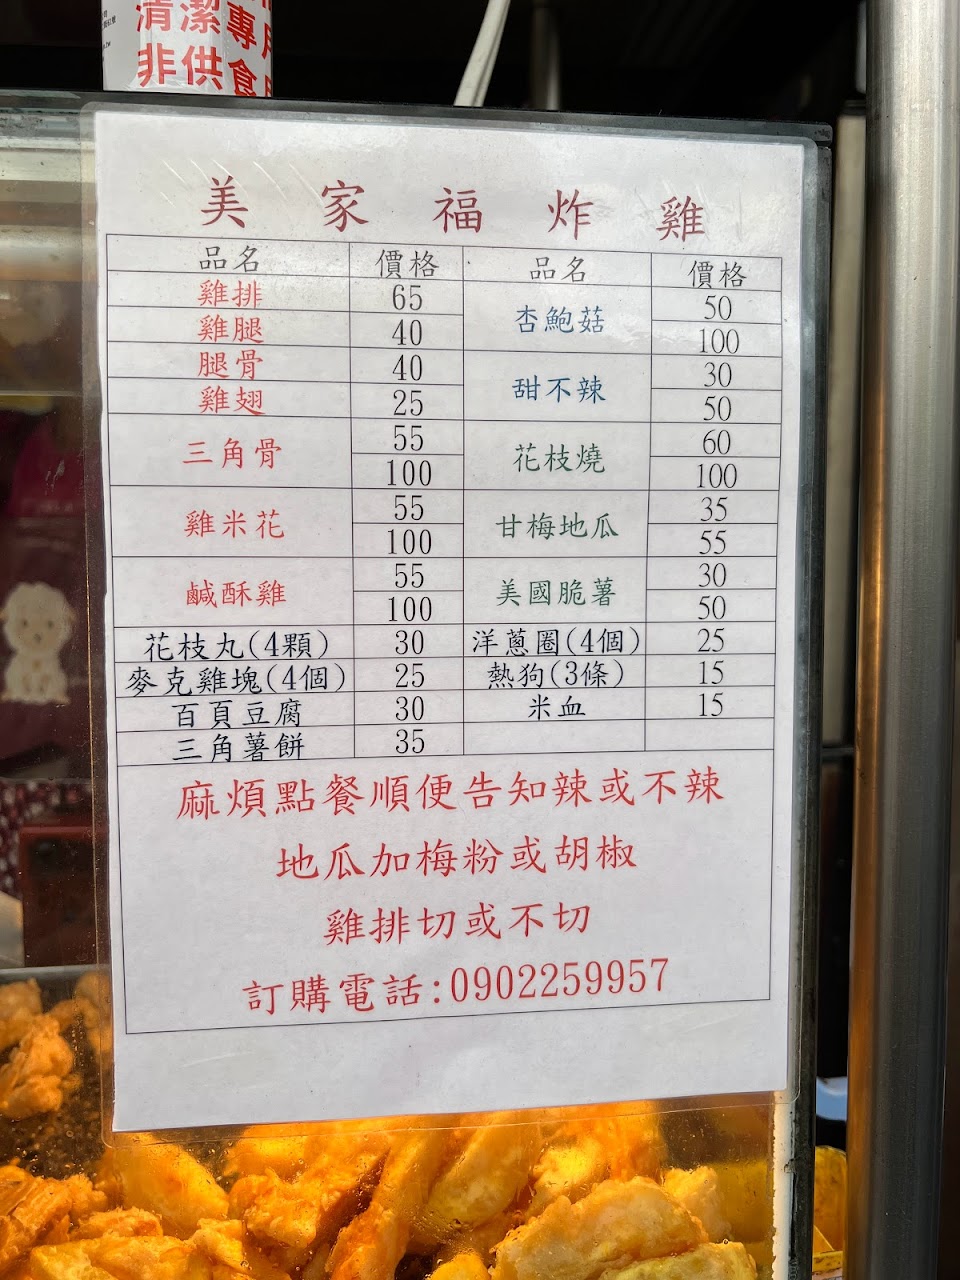 清潔專用
非供食
美家福炸雞
品名 價格 品名 價格
雞排 65 杏鮑菇 50
雞腿 40 100
腿骨 40 甜不辣 30
雞翅 25 50
三角骨 55 花枝燒 60
100 100
雞米花 55 甘梅地瓜 35
100 55
鹹酥雞 55 美國脆薯 30
100 50
花枝丸(4顆) 30 洋蔥圈(4個) 25
麥克雞塊(4個) 25 熱狗(3條) 15
百頁豆腐 30 米血 15
三角薯餅 35
麻煩點餐順便告知辣或不辣
地瓜加梅粉或胡椒
雞排切或不切
訂購電話:0902259957